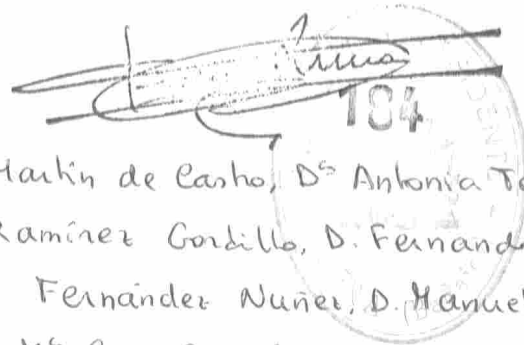 184
Martín de Castro, Dª Antonia
Ramírez Gordillo, D. Fernand
Fernández Nuñez, D. Manuel